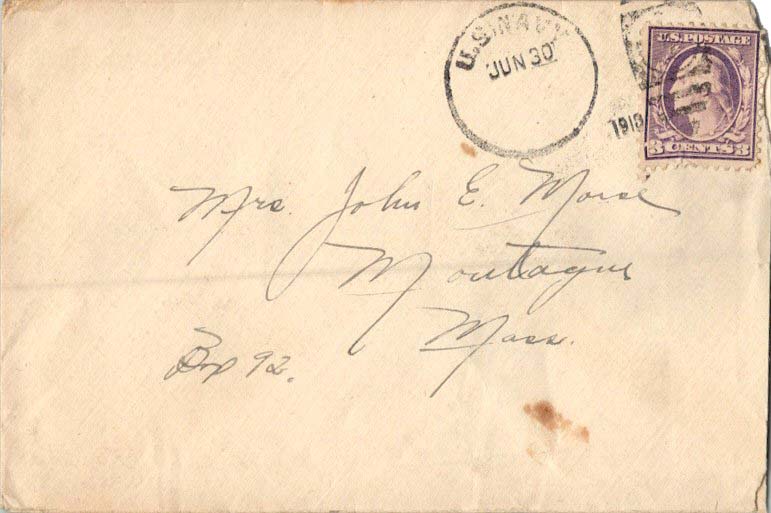 U.S. NAVY
JUN 30
1918
U.S. POSTAGE
3 CENTS 3
Mrs. John E. Morse
Montague
Mass.
Box 92.